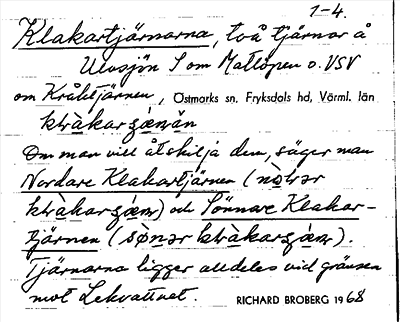 1-4.
Klakartjärnarna, två tjärnar å
Ulvsjön S om Mattopen o. VSV
om Kråktjärnen, Östmarks sn, Fryksdals hd, Värml. län
Om man vill åtskilja dem, säger man
Nordare Klakartjärnen (
) och Sönnare Klakar-
tjärnen (
Tjärnarna ligger alldeles vid gränsen
mot Lekvattnet. RICHARD BROBERG 1968